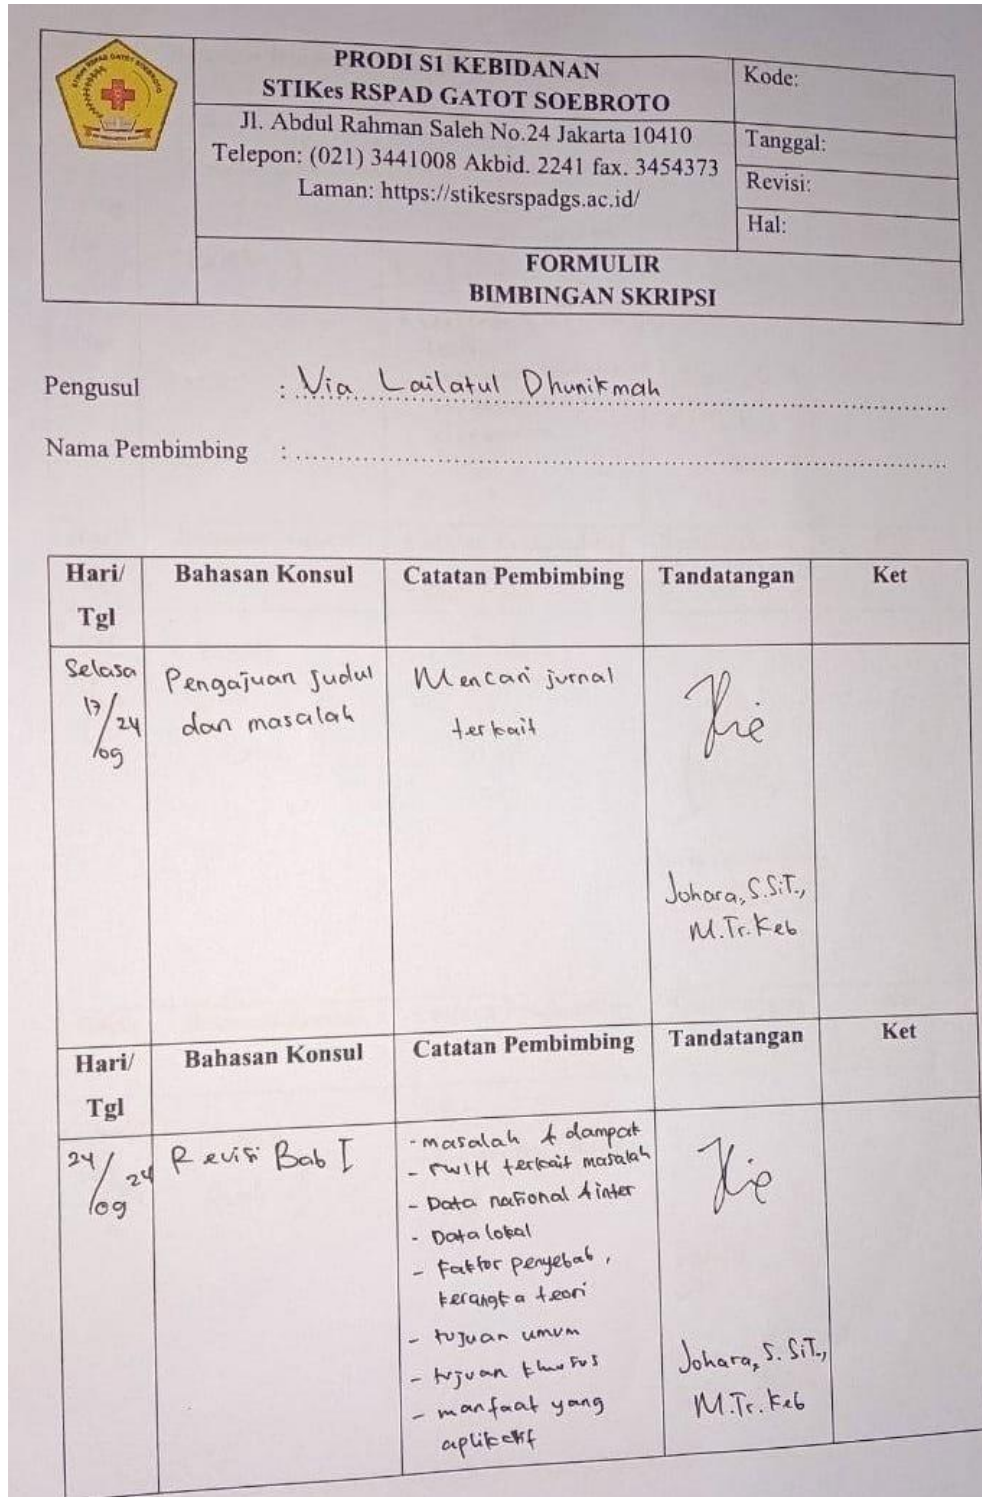 PRODI S1 KEBIDANAN
STIKes RSPAD GATOT SOEBROTO
Jl. Abdul Rahman Saleh No.24 Jakarta 10410
Telepon: (021) 3441008 Akbid. 2241 fax. 3454373
Laman: https://stikesrspadgs.ac.id/
Kode:
Tanggal:
Revisi:
Hal:
FORMULIR
BIMBINGAN SKRIPSI
Pengusul : Via Lailatul Dhunikmah
Nama Pembimbing :
Hari/ Tgl
Bahasan Konsul
Catatan Pembimbing
Tandatangan
Ket
Selasa
17/09 24
Pengajuan judul
dan masalah
Mencari jurnal
terkait
Johara, S.SiT.,
M.Tr.Keb
Hari/ Tgl
Bahasan Konsul
Catatan Pembimbing
Tandatangan
Ket
24/09 24
Revisi Bab I
- masalah & dampak
- 5W1H terkait masalah
- Data nasional & inter
- Data lokal
- Faktor penyebab,
kerangka teori
- tujuan umum
- tujuan khusus
- manfaat yang
aplikatif
Johara, S.SiT.,
M.Tr.Keb